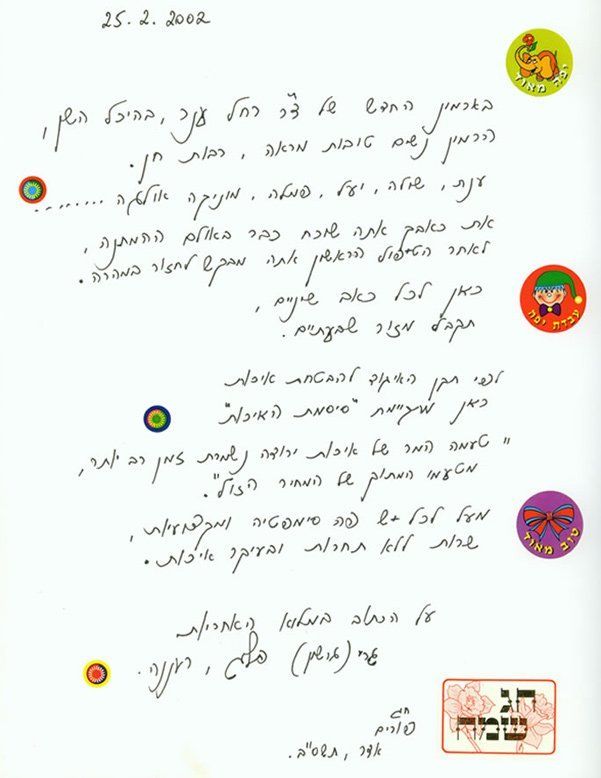 25.2.2002
יפה מאוד
בארמון החדש של ד"ר רחל ענר, בהיכל השן,
הרמון נשים טובות מראה, רבות חן.
ענת, שולה, יעל, פמלה, מוניקה אולגה .........
את כאבך אתה שוכח כבר באולם ההמתנה,
לאחר הטיפול הראשון אתה מבקש לחזור במהרה.
כאן לכל כאב שיניים,
תקבל מזור שבעתיים.
עבודה יפה
לפי תקן האיגוד להבטחת איכות
כאן מתקיימת "סיסמת האיכות"
"טעמה המר של איכות ירודה נשמרת זמן רב יותר,
מטעמי המתוק של המחיר הזול".
מעל לכל יש פה סימפטיה ומקצועיות,
שרות ללא תחרות ובעיקר איכות.
טוב מאוד
על הכתוב במלוא האחריות
(גרשון) פלג, רעננה.
חג
פורים
אדר, תשס"ב.
חג
שמח